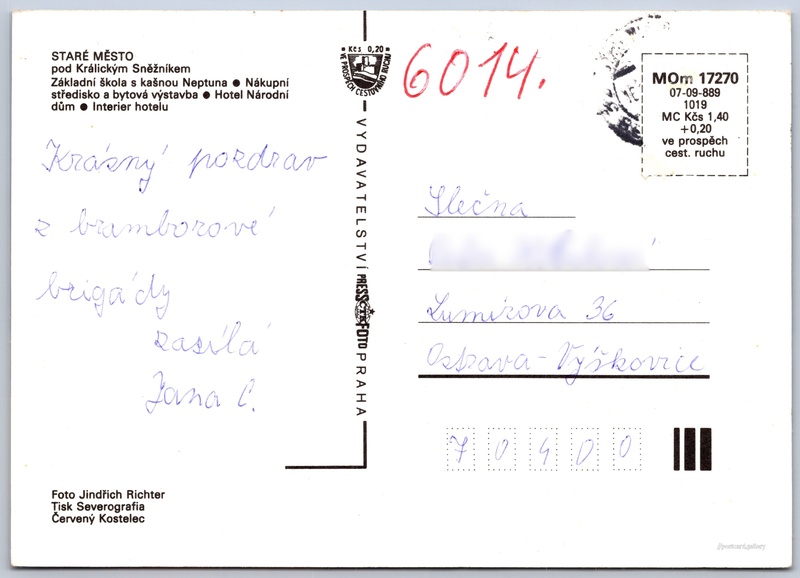 STARÉ MĚSTO
pod Králickým Sněžníkem
Základní škola s kašnou Neptuna ● Nákupní
středisko a bytová výstavba ● Hotel Národní
dům ● Interier hotelu
Krásný pozdrav
z bramborové
brigády
zasílá
Jana C.
Foto Jindřich Richter
Tisk Severografia
Červený Kostelec
Kčs 0,20
VE PROSPĚCH CESTOVNÍHO RUCHU
VYDAVATELSTVÍ PRESSFOTO PRAHA
ČTK
6014.
MOm 17270
07-09-889
1019
MC Kčs 1,40
+0,20
ve prospěch
cest. ruchu
Slečna
Lumírova 36
Ostrava-Výškovice
70400